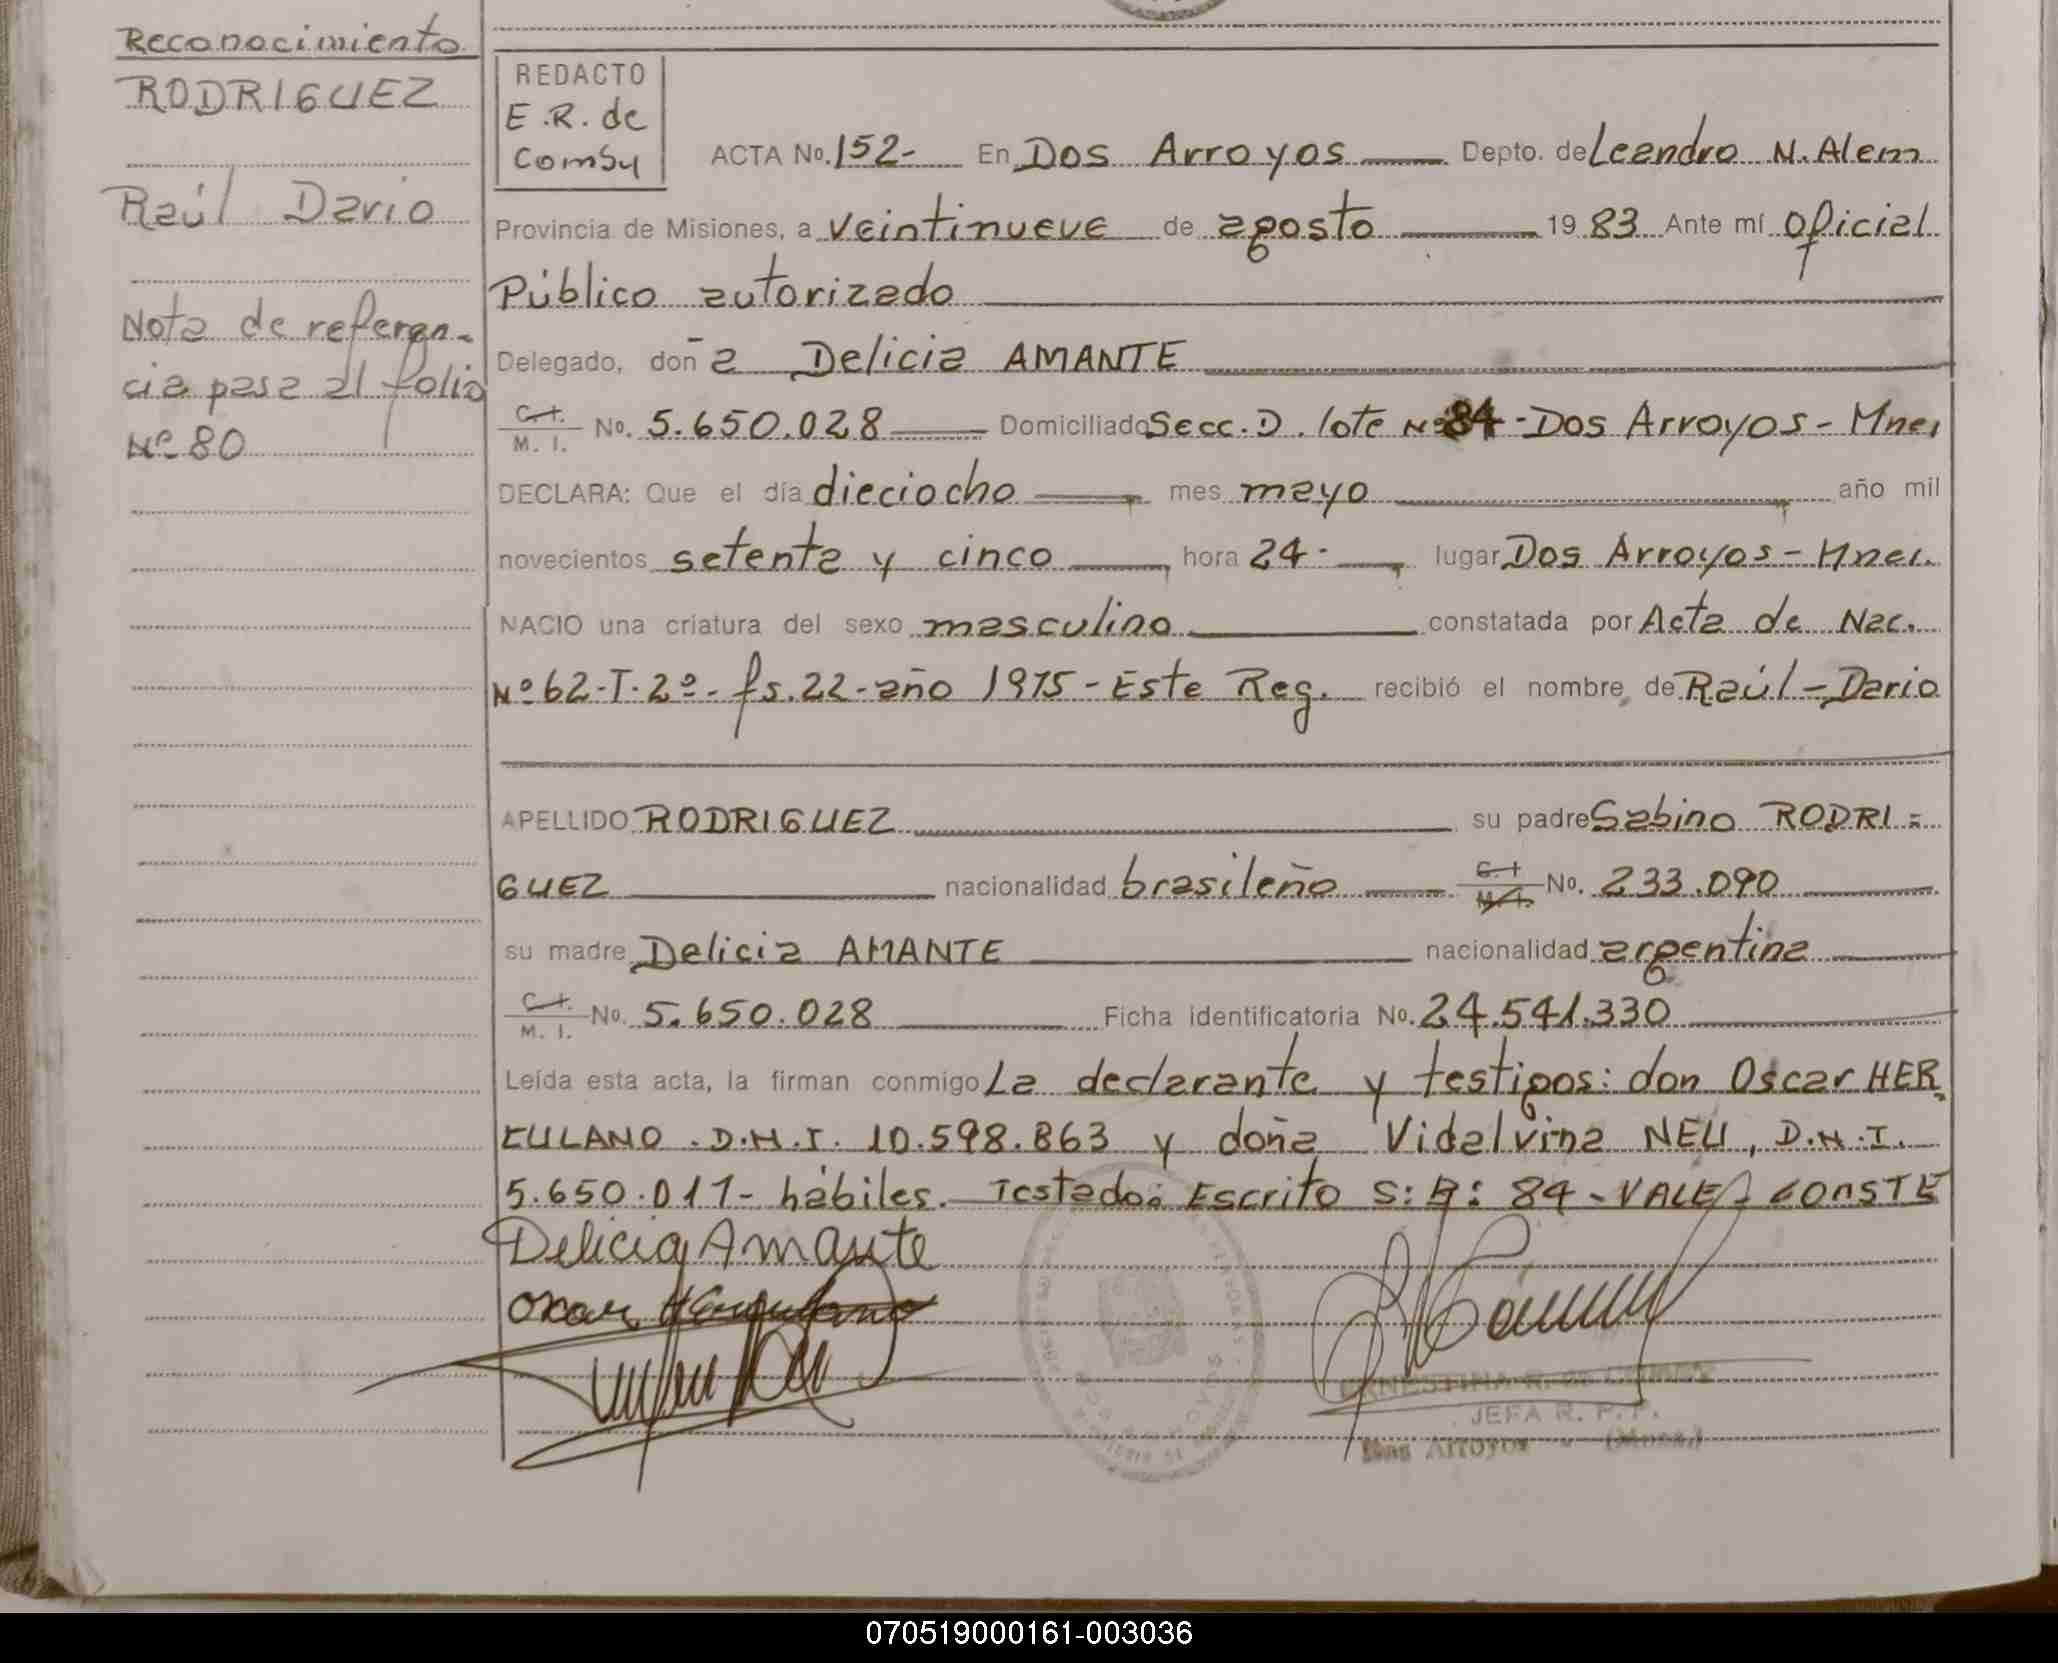 Reconocimiento
RODRIGUEZ
Raúl Dario
Nota de referen-
cia pasa al folio
Nº 80
REDACTO
E.R. de
Comby
ACTA No. 152- En Dos Arroyos Depto. de Leandro N. Alem
Provincia de Misiones, a veintinueve de agosto 19 83 Ante mí Oficial
Público autorizado
Delegado, doña Delicia AMANTE
C.I. / M. I. No. 5.650.028 Domiciliado Secc. D. lote Nº 84 - Dos Arroyos - Mnes
DECLARA: Que el día dieciocho mes mayo año mil
novecientos setenta y cinco hora 24- lugar Dos Arroyos - Mnes.
NACIO una criatura del sexo masculino constatada por Acta de Nac.
Nº 62-T.2º- fs.22-año 1975 - Este Reg. recibió el nombre de Raúl - Dario
APELLIDO RODRIGUEZ su padre Sabino RODRI =
GUEZ nacionalidad brasileño C.I / M.I. No. 233.090
su madre Delicia AMANTE nacionalidad argentina
C.I. / M. I. No. 5.650.028 Ficha identificatoria No. 24.541.330
Leída esta acta, la firman conmigo La declarante y testigos: don Oscar HER
CULANO. D.N.I. 10.598.863 y doña Vidalvina NEU, D.N.I.
5.650.011- hábiles. Testado: Escrito S: R: 84 - VALE - CONSTE
Delicia Amante
Oscar Herculano
ERNESTINA R. de COMBY
JEFA R. P. P.
Dos Arroyos - (Mnes)
070519000161-003036